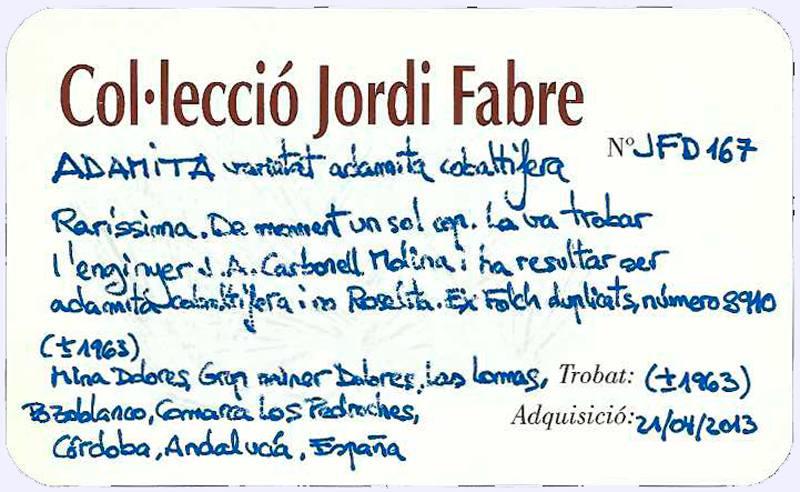 Col·lecció Jordi Fabre
Nº JFD 167
ADAMITA varietat adamita cobaltífera
Raríssima. De moment un sol cop. La va trobar
l'enginyer J. A. Carbonell Molina i ha resultar ser
adamita cobaltífera i no Roselita. Ex Folch duplicats, número 8910
(±1963)
Mina Dolores, Grup miner Dolores, Las Lomas,
Trobat: (±1963)
Pozoblanco, Comarca Los Pedroches,
Adquisició: 21/04/2013
Córdoba, Andalucía, España